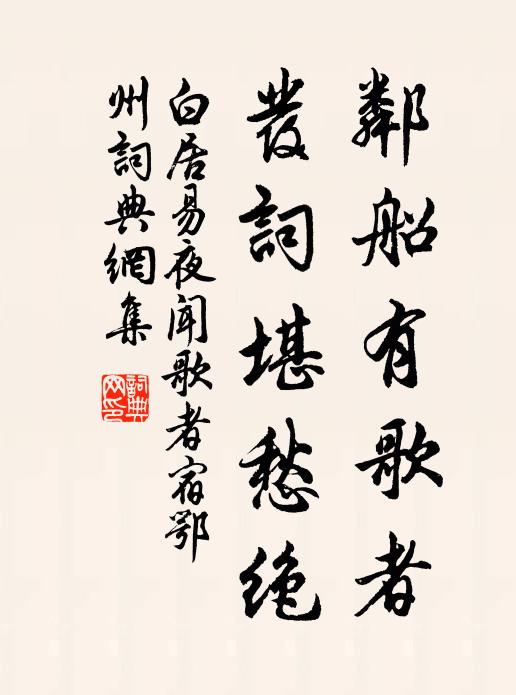 鄰船有歌者
發詞堪愁絶
白居易夜聞歌者宿鄂
州詞典網集
詞典
网印